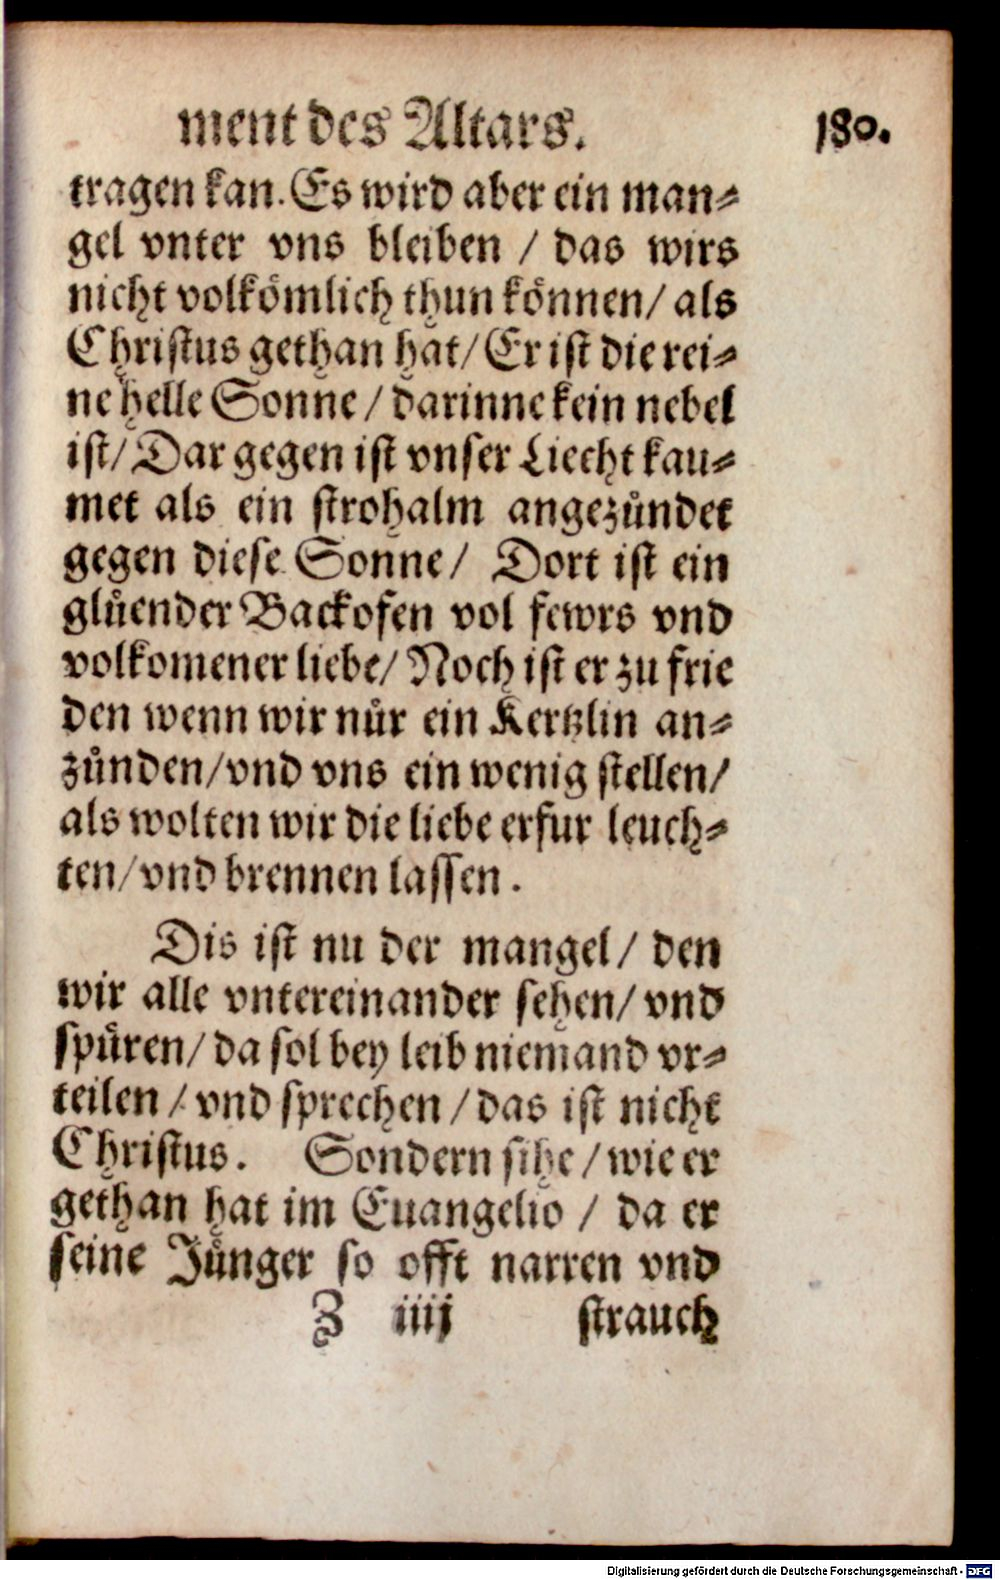 ment des Altars. 180.
tragen kan. Es wird aber ein man⸗
gel vnter vns bleiben / das wirs
nicht volkömlich thun können/ als
Christus gethan hat/ Er ist die rei⸗
ne helle Sonne / darinne kein nebel
ist/ Dar gegen ist vnser Liecht kau⸗
met als ein strohalm angezůndet
gegen diese Sonne/ Dort ist ein
glůender Backofen vol fewrs vnd
volkomener liebe/ Noch ist er zu frie
den wenn wir nůr ein Kertzlin an⸗
zůnden/ vnd vns ein wenig stellen/
als wolten wir die liebe erfur leuch⸗
ten/ vnd brennen lassen.
Dis ist nu der mangel/ den
wir alle vntereinander sehen/ vnd
spůren/ da sol bey leib niemand vr⸗
teilen / vnd sprechen / das ist nicht
Christus. Sondern sihe / wie er
gethan hat im Euangelio / da er
seine Jůnger so offt narren vnd
Z iiij strauch
Digitalisierung gefördert durch die Deutsche Forschungsgemeinschaft - DFG